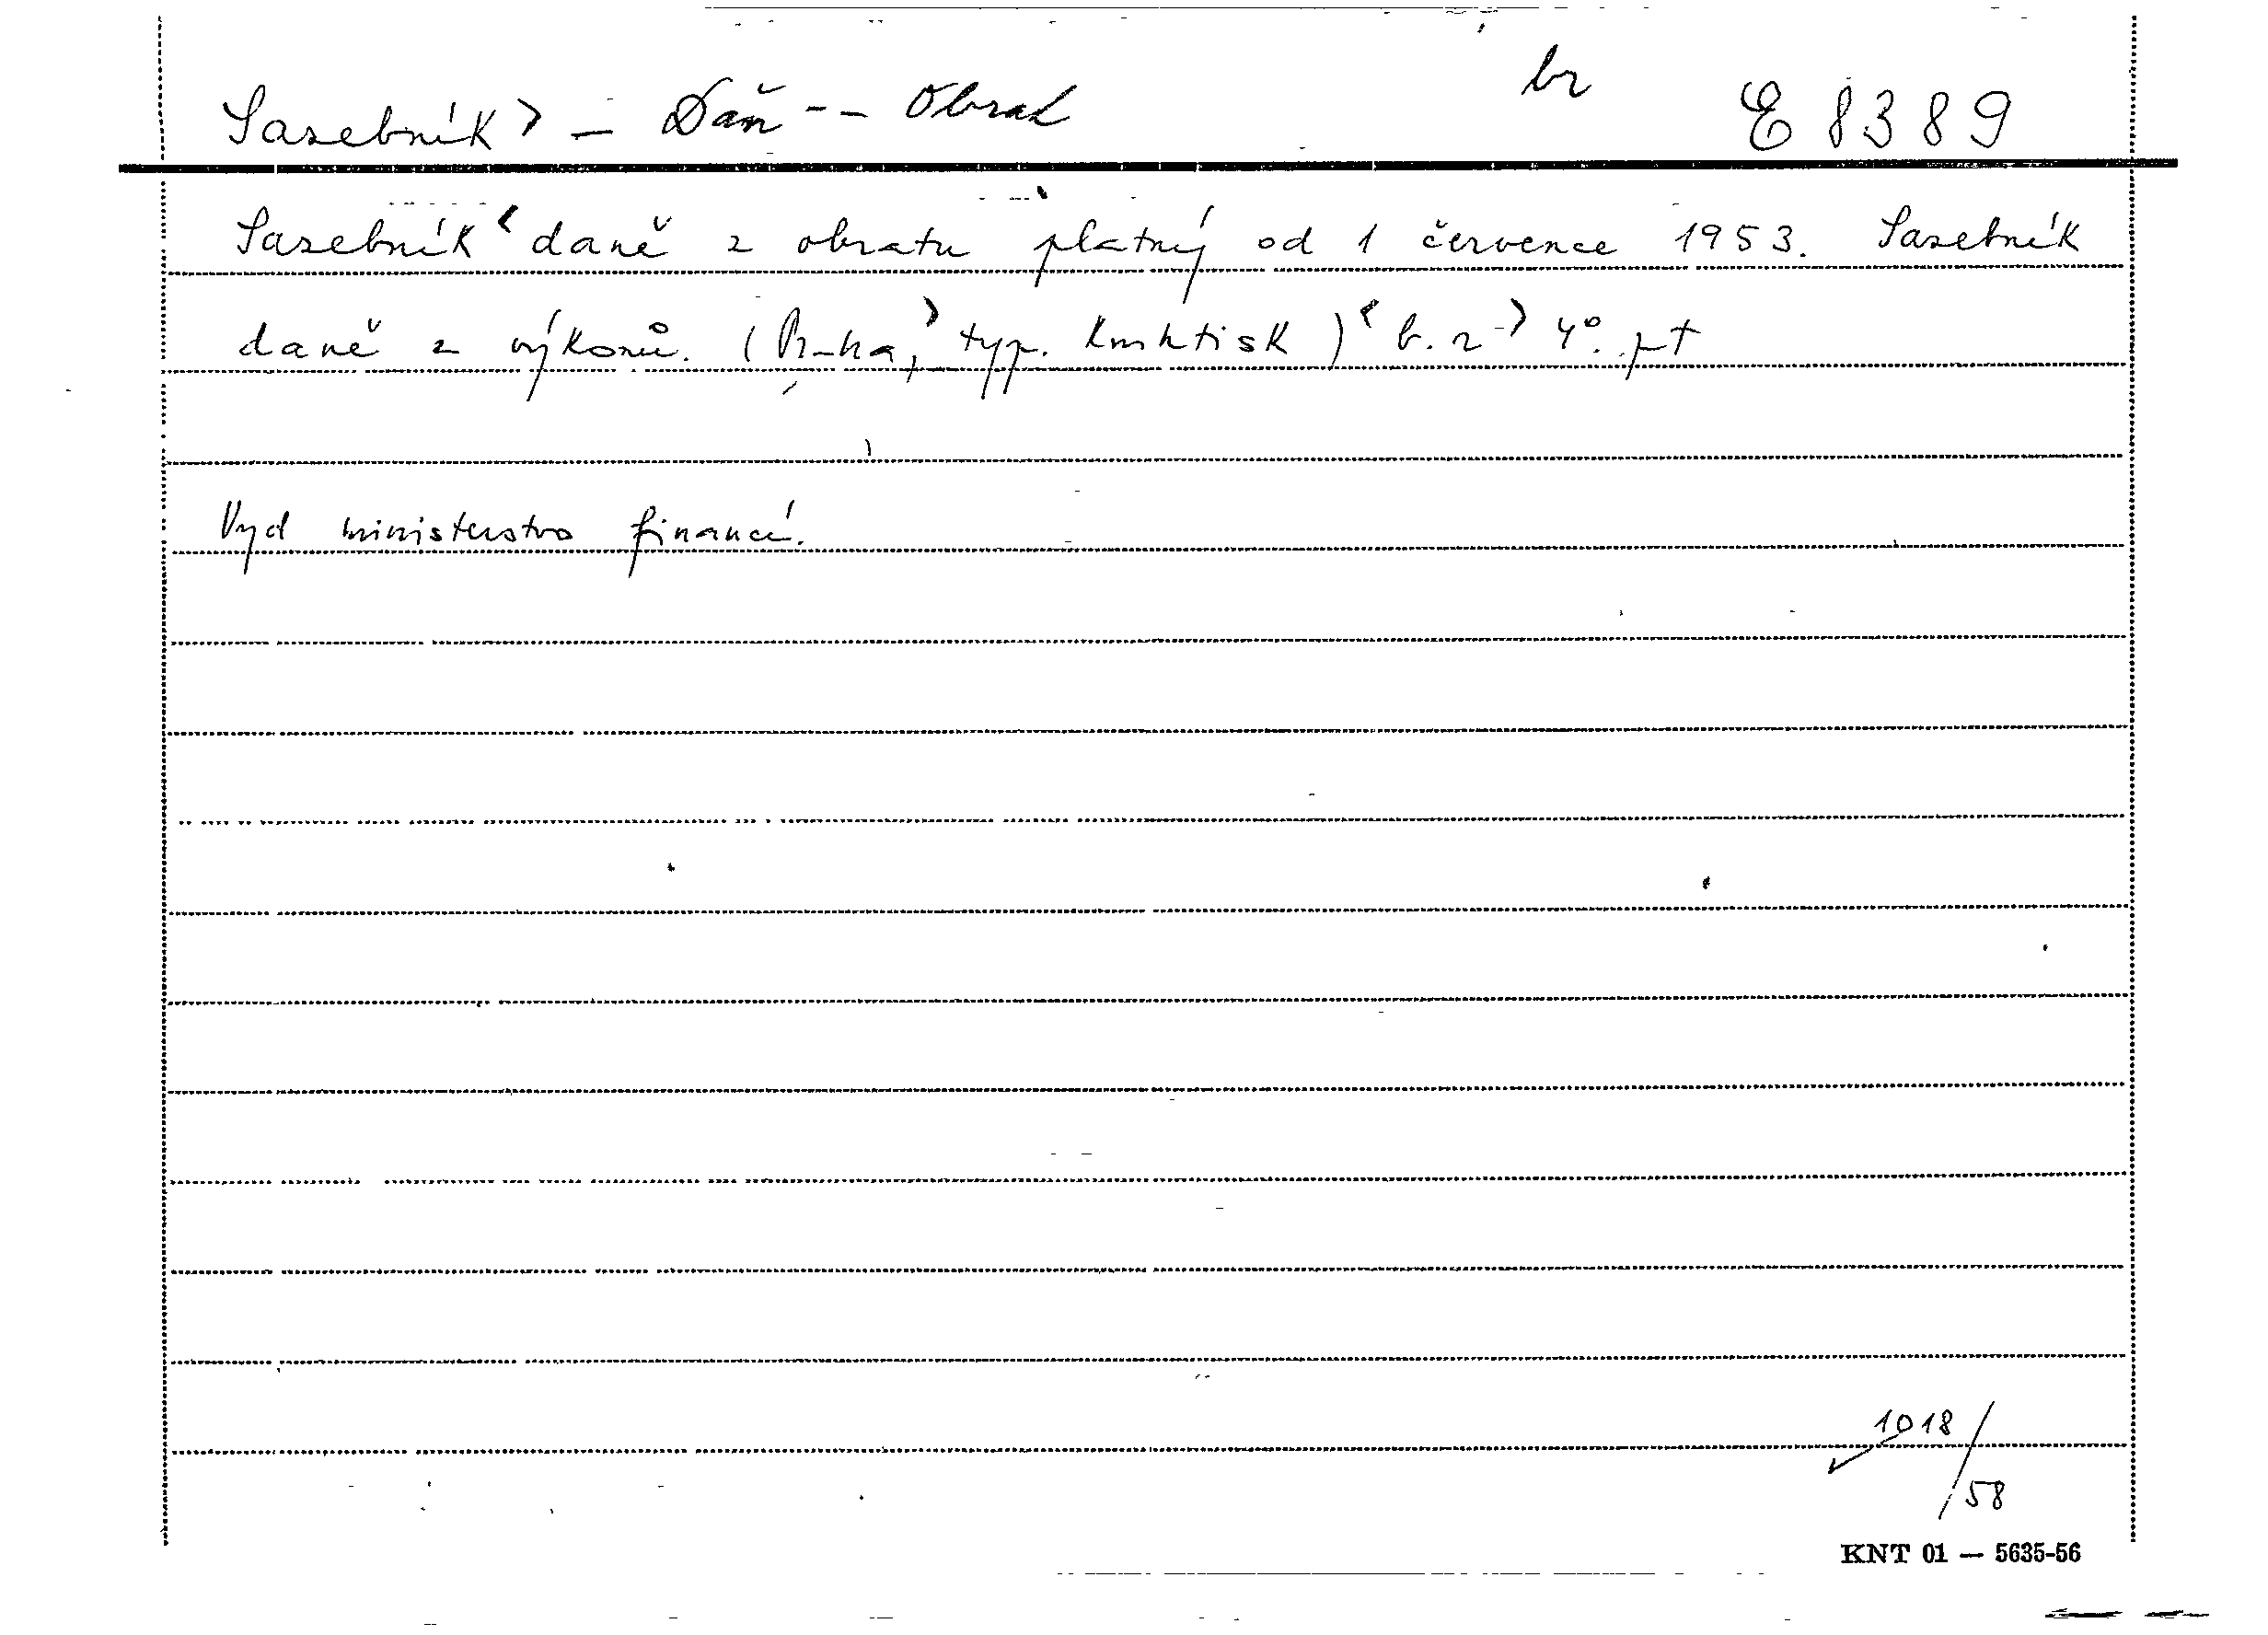 Sazebník> - Daň -- Obrat br E 8389
Sazebník < daně z obratu platný od 1 července 1953. Sazebník
daně z výkonů. (Praha,> typ. Knihtisk)< b. r.-> 4°. pt
Vyd ministerstvo financí.
1018/58
KNT 01 — 5635-56